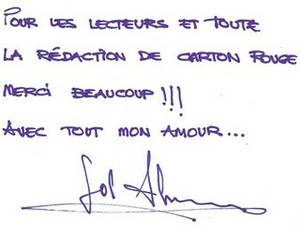 POUR LES LECTEURS ET TOUTE
LA RÉDACTION DE CARTON ROUGE
MERCI BEAUCOUP !!!
AVEC TOUT MON AMOUR...